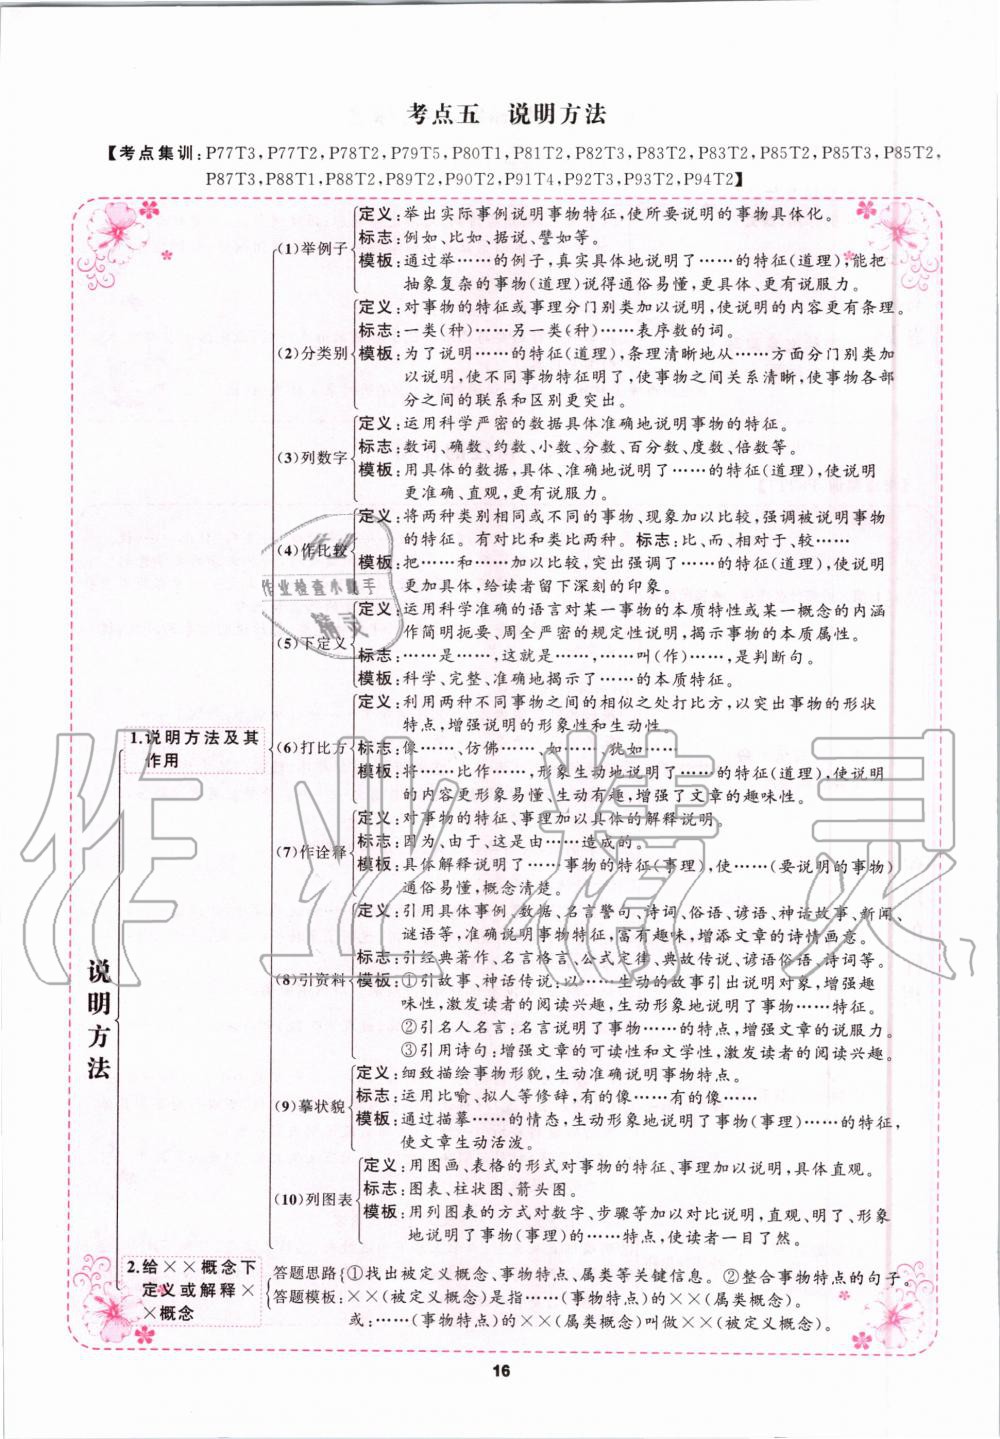 考点五　说明方法
【考点集训:P77T3,P77T2,P78T2,P79T5,P80T1,P81T2,P82T3,P83T2,P83T2,P85T2,P85T3,P85T2,
P87T3,P88T1,P88T2,P89T2,P90T2,P91T4,P92T3,P93T2,P94T2】
说明方法
1.说明方法及其
作用
(1)举例子
定义:举出实际事例说明事物特征,使所要说明的事物具体化。
标志:例如、比如、据说、譬如等。
模板:通过举……的例子,真实具体地说明了……的特征(道理),能把
抽象复杂的事物(道理)说得通俗易懂,更具体、更有说服力。
(2)分类别
定义:对事物的特征或事理分门别类加以说明,使说明的内容更有条理。
标志:一类(种)……另一类(种)……表序数的词。
模板:为了说明……的特征(道理),条理清晰地从……方面分门别类加
以说明,使不同事物特征明了,使事物之间关系清晰,使事物各部
分之间的联系和区别更突出。
(3)列数字
定义:运用科学严密的数据具体准确地说明事物的特征。
标志:数词、确数、约数、小数、分数、百分数、度数、倍数等。
模板:用具体的数据,具体、准确地说明了……的特征(道理),使说明
更准确、直观,更有说服力。
(4)作比较
定义:将两种类别相同或不同的事物、现象加以比较,强调被说明事物
的特征。有对比和类比两种。标志:比、而、相对于、较……
模板:把……和……加以比较,突出强调了……的特征(道理),使说明
更加具体,给读者留下深刻的印象。
(5)下定义
定义:运用科学准确的语言对某一事物的本质特性或某一概念的内涵
作简明扼要、周全严密的规定性说明,揭示事物的本质属性。
标志:……是……,这就是……,……叫(作)……,是判断句。
模板:科学、完整、准确地揭示了……的本质特征。
(6)打比方
定义:利用两种不同事物之间的相似之处打比方,以突出事物的形状
特点,增强说明的形象性和生动性。
标志:像……、仿佛……、如……、犹如……
模板:将……比作……,形象生动地说明了……的特征(道理),使说明
的内容更形象易懂、生动有趣,增强了文章的趣味性。
(7)作诠释
定义:对事物的特征、事理加以具体的解释说明。
标志:因为、由于、这是由……造成的。
模板:具体解释说明了……事物的特征(事理),使……(要说明的事物)
通俗易懂,概念清楚。
(8)引资料
定义:引用具体事例、数据、名言警句、诗词、俗语、谚语、神话故事、新闻、
谜语等,准确说明事物特征,富有趣味,增添文章的诗情画意。
标志:引经典著作、名言格言、公式定律、典故传说、谚语俗语、诗词等。
模板:①引故事、神话传说:以……生动的故事引出说明对象,增强趣
味性,激发读者的阅读兴趣,生动形象地说明了事物……特征。
②引名人名言:名言说明了事物……的特点,增强文章的说服力。
③引用诗句:增强文章的可读性和文学性,激发读者的阅读兴趣。
(9)摹状貌
定义:细致描绘事物形貌,生动准确说明事物特点。
标志:运用比喻、拟人等修辞,有的像……有的像……
模板:通过描摹……的情态,生动形象地说明了事物(事理)……的特征,
使文章生动活泼。
(10)列图表
定义:用图画、表格的形式对事物的特征、事理加以说明,具体直观。
标志:图表、柱状图、箭头图。
模板:用列图表的方式对数字、步骤等加以对比说明,直观、明了、形象
地说明了事物(事理)的……特点,使读者一目了然。
2.给××概念下
定义或解释×
×概念
答题思路{①找出被定义概念、事物特点、属类等关键信息。②整合事物特点的句子。
答题模板:××(被定义概念)是指……(事物特点)的××(属类概念)。
或:……(事物特点)的××(属类概念)叫做××(被定义概念)。
16
作业
作业检查小助手
精灵
作业精灵